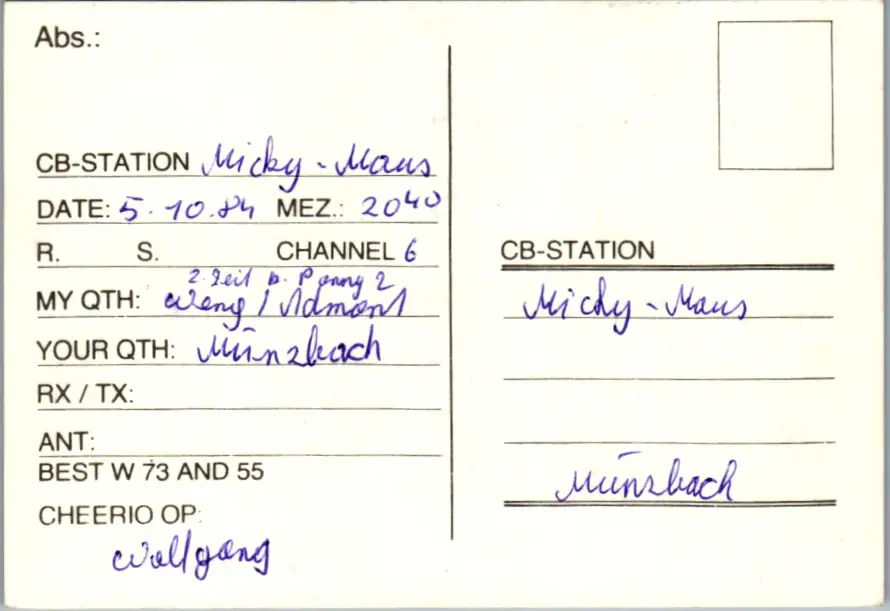 Abs.:
CB-STATION Micky-Maus
DATE: 5.10.84 MEZ.: 20⁴⁰
R. S. CHANNEL 6
2. Zeil b. P 2
MY QTH: Weng / Admont
YOUR QTH: Münzbach
RX / TX:
ANT:
BEST W 73 AND 55
CHEERIO OP:
Wolfgang
CB-STATION
Micky-Maus
Münzbach